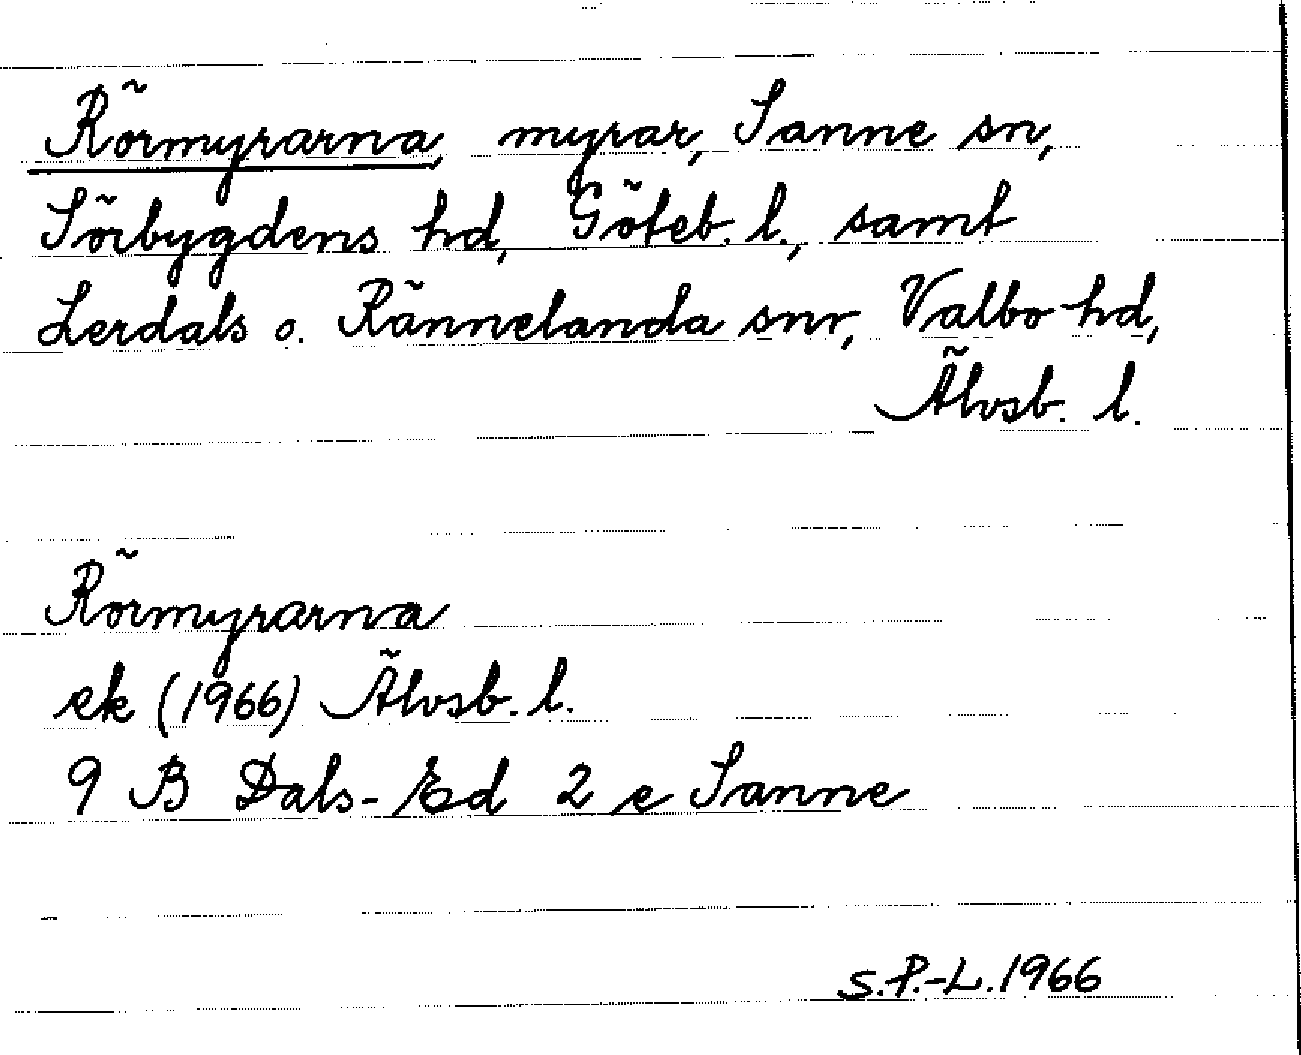 Rörmyrarna, myrar, Sanne sn,
Sörbygdens hd, Göteb. l., samt
Lerdals o. Rännelanda snr, Valbo hd,
Älvsb. l.
Rörmyrarna
ek (1966) Älvsb. l.
9 B Dals-Ed 2 e Sanne
S.P.-L. 1966